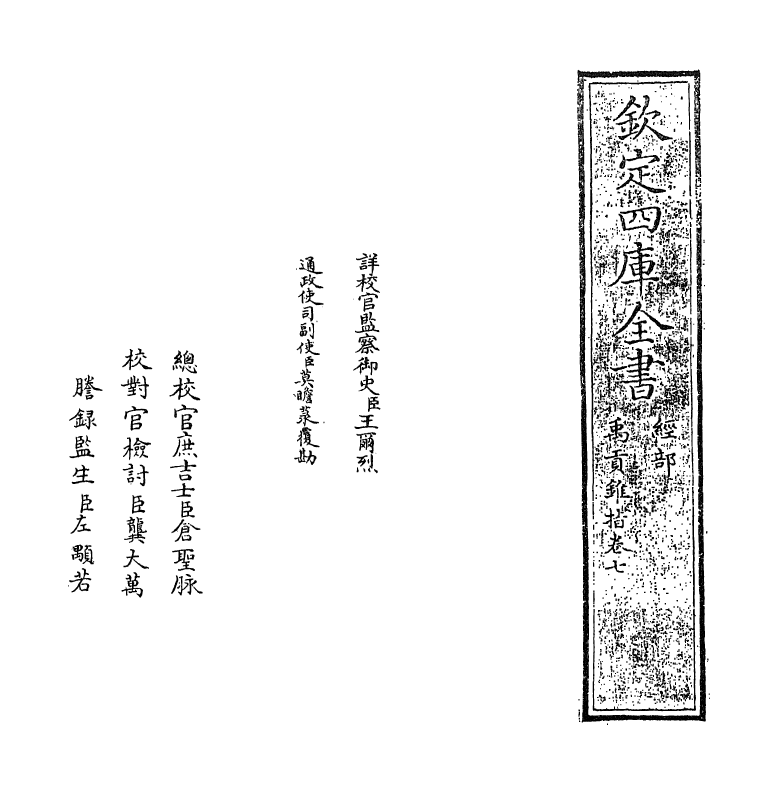 欽定四庫全書
經部
禹貢錐指卷七
詳校官監察御史臣王爾烈
通政使司副使臣莫瞻菉覆勘
總校官庶吉士臣倉聖脉
校對官檢討臣龔大萬
謄録監生臣左顒若